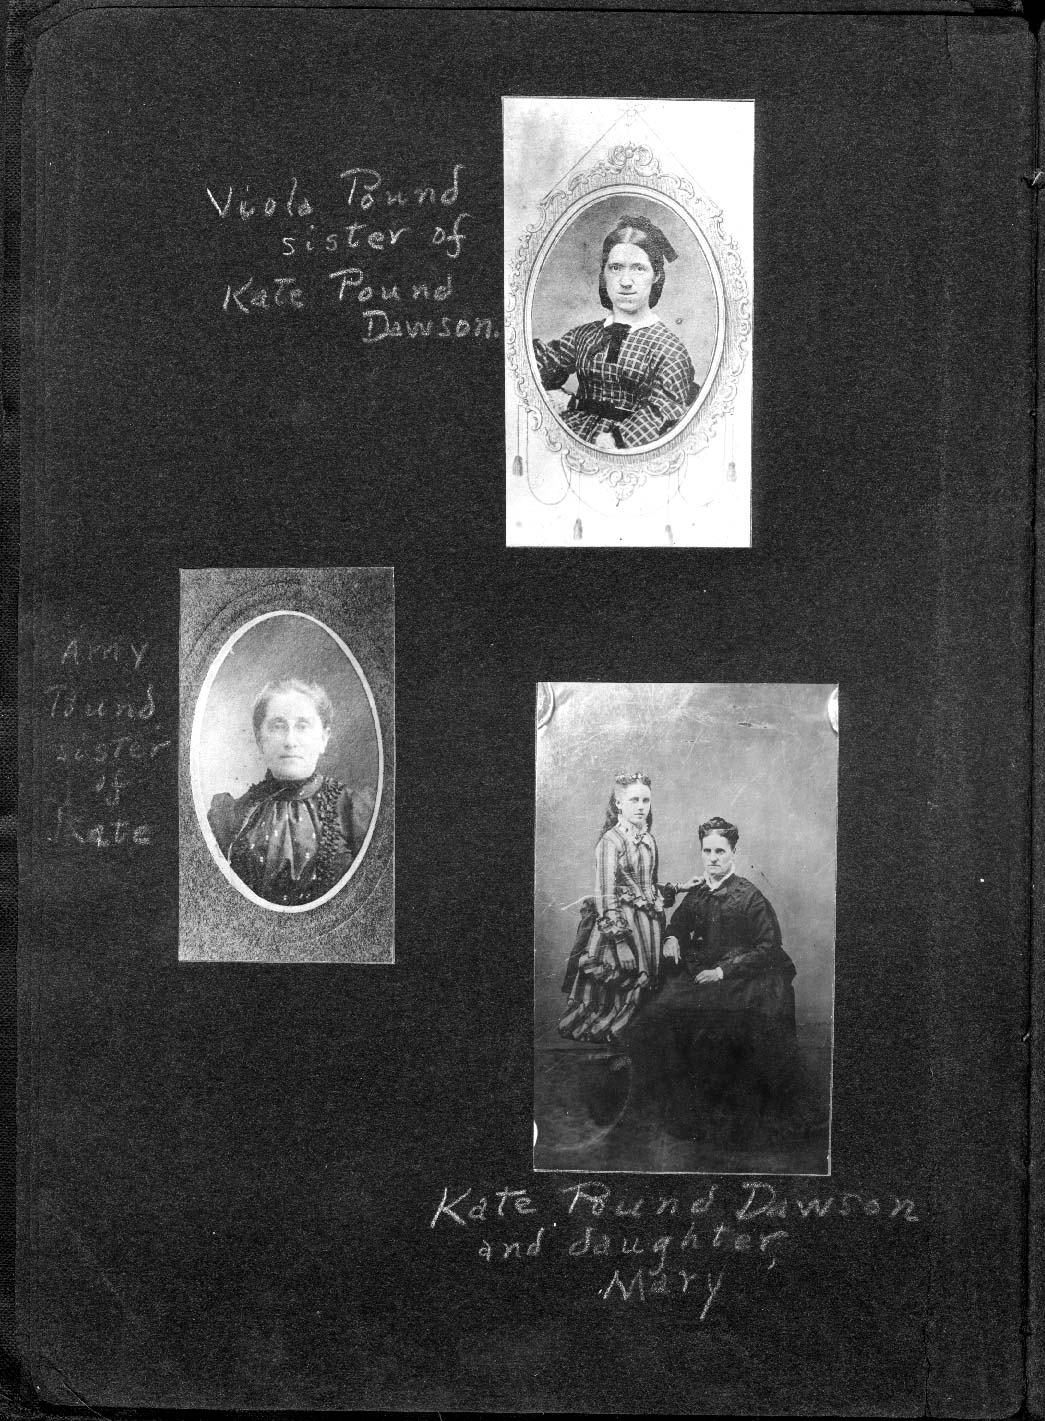 Viola Pound
sister of
Kate Pound
Dawson.
Amy
Pound
sister
of
Kate
Kate Pound Dawson
and daughter,
Mary